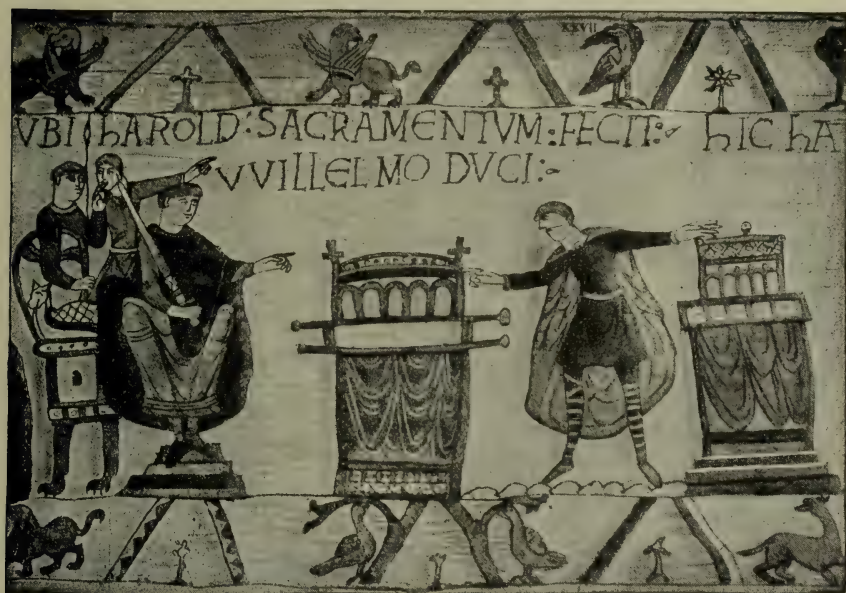 XXVII
VBI hAROLD: SACRAMENTVM: FECIT:- hIC hA
VVILLELMO DVCI:-